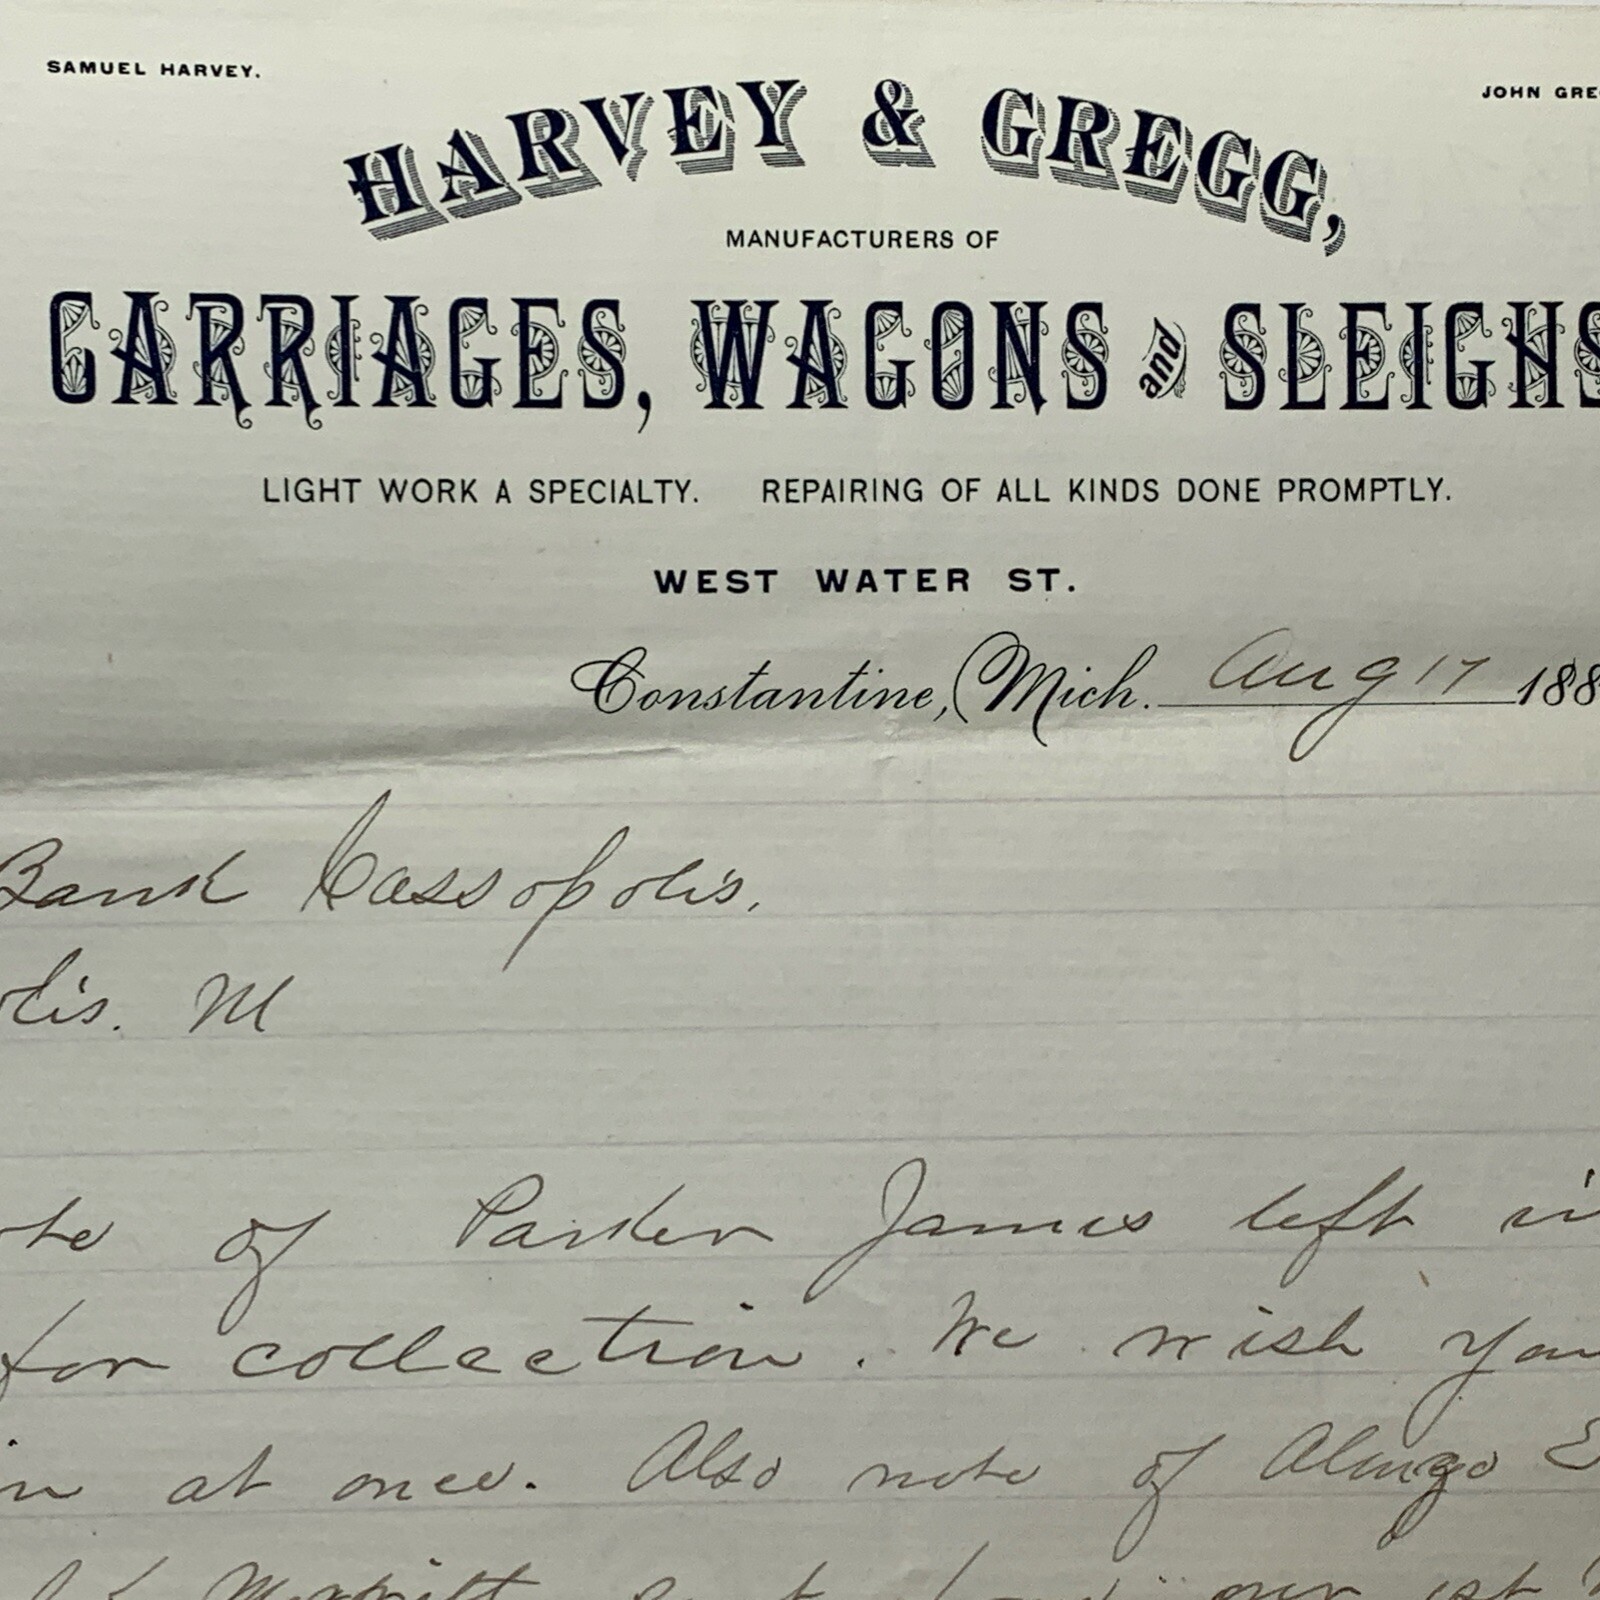 SAMUEL HARVEY.
JOHN GRE
HARVEY & GREGG,
MANUFACTURERS OF
CARRIAGES, WAGONS and SLEIGHS
LIGHT WORK A SPECIALTY. REPAIRING OF ALL KINDS DONE PROMPTLY.
WEST WATER ST.
Constantine, Mich. Aug 17 188
Bank Cassopolis.
olis. M
ote of Parker James left in
for collection. We wish you
in at once. Also note of Alonzo E
our 1st